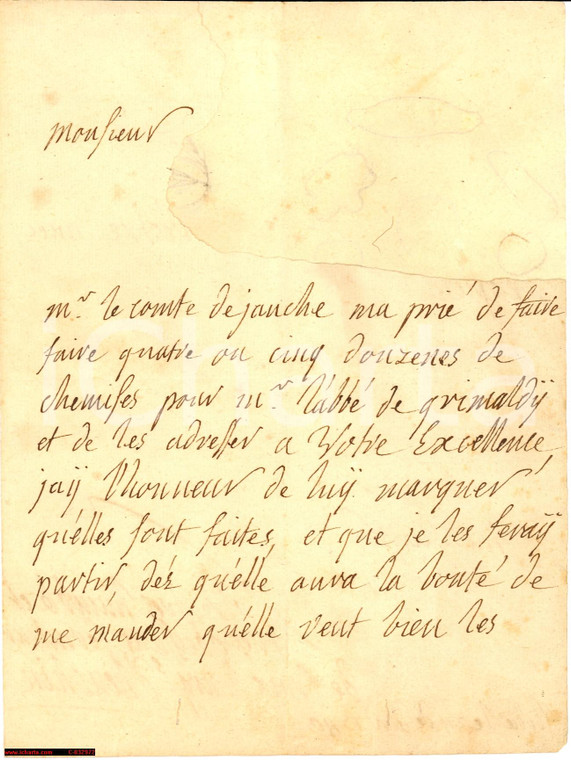 monsieur
mr. le comte de jauche ma prié de faire
faire quatre ou cinq douzenes de
chemises pour mr. l'abbé de grimaldÿ
et de les adresser a Votre Excellence,
jaÿ l'honneur de luÿ marquer
qu'elles sont faites, et que je les feraÿ
partir, dés qu'elle aura la bonté de
me mander qu'elle veut bien les
iCharta
www.icharta.com C-837927